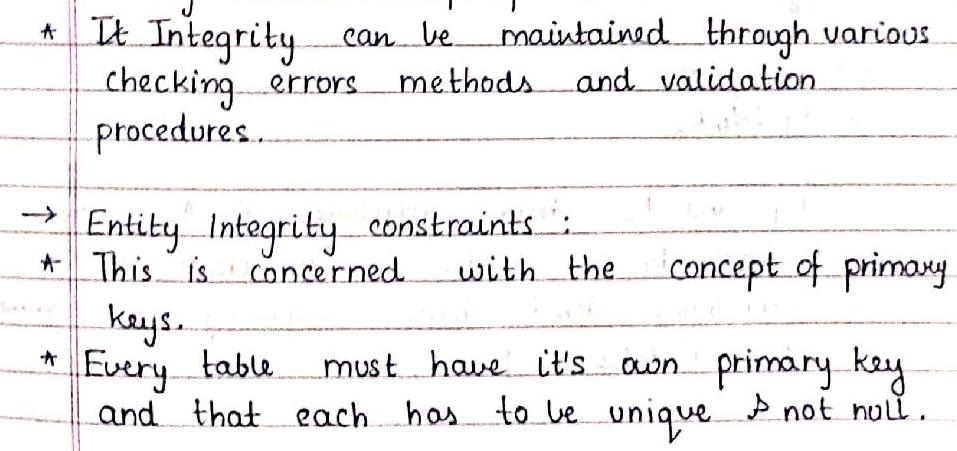 * It Integrity can be maintained through various
checking errors methods and validation
procedures.
→ Entity Integrity constraints :
* This is concerned with the concept of primary
keys.
* Every table must have it's own primary key
and that each has to be unique & not null.